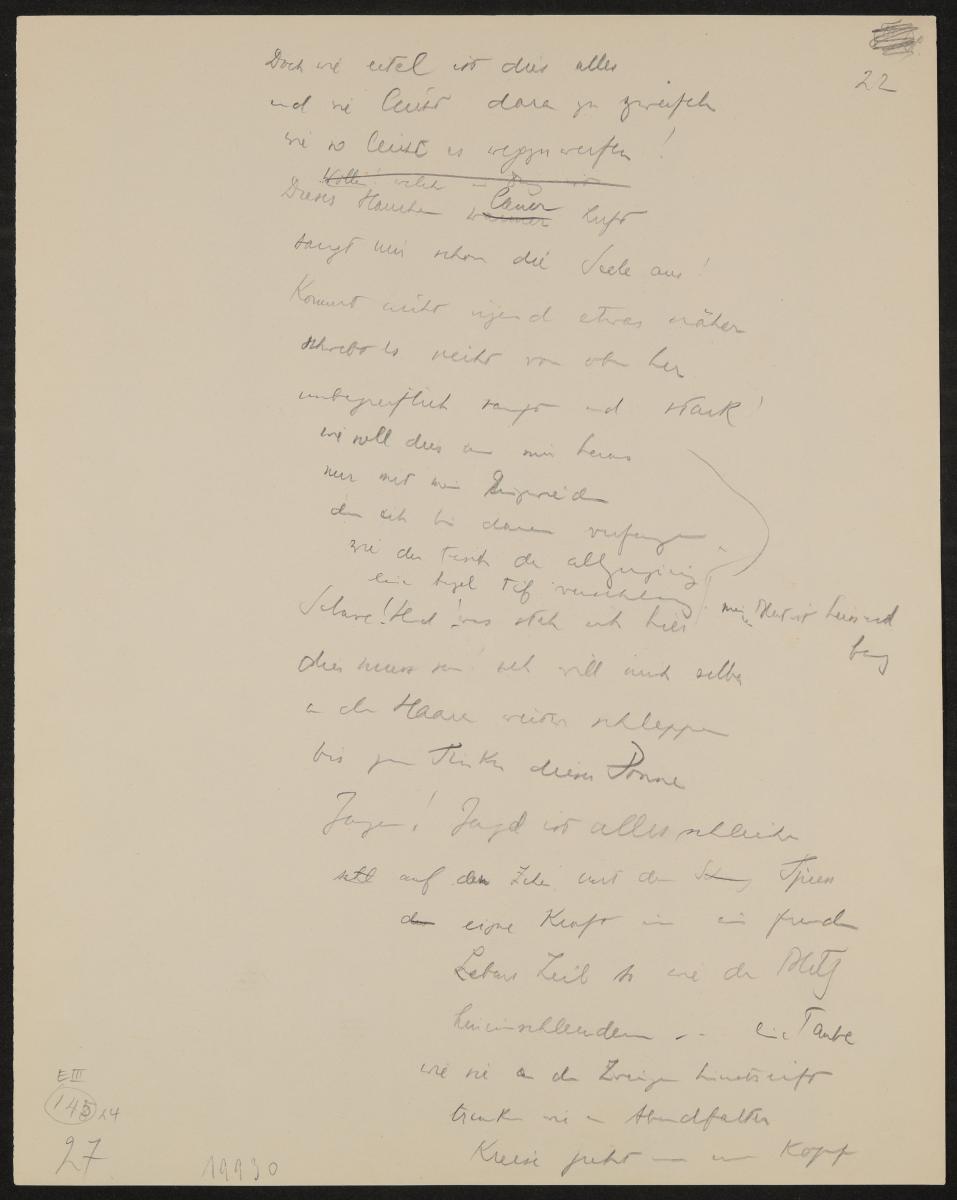 22
Doch wie eitel ist dies alles
und wie leicht daran zu zweifeln
wie so leicht es wegzuwerfen!
Dieses Hauchen warmer lauer Luft
saugt mir schon die Seele aus!
Kommt nicht irgend etwas näher
schwebt es nicht von oben her
unbegreiflich sanft und stark!
wie soll dies aus mir heraus
nur mit mein Eingeweiden
den ich bin daran verfangen
wie der Fisch der allzugierig
eine Angel tief verschlang
mein Blut ist heiss und
bang
Sclave! Hund! was steh ich hier
dies muss sein! ich will mich selber
an den Haaren weiter schleppen
bis zum Trinken dieser Wonne
Jagen! Jagd ist alles schleichen
auf den Zehen mit dem Spiess
eigne Kraft in ein fremden
Lebens Leib so wie der Blitz
hineinschleudern -- eine Taube
wie sie an den Zweigen hinstreift
trunken wie ein Abendfalter
Kreise zieht um um Kopf
E III
145 24
27
19930